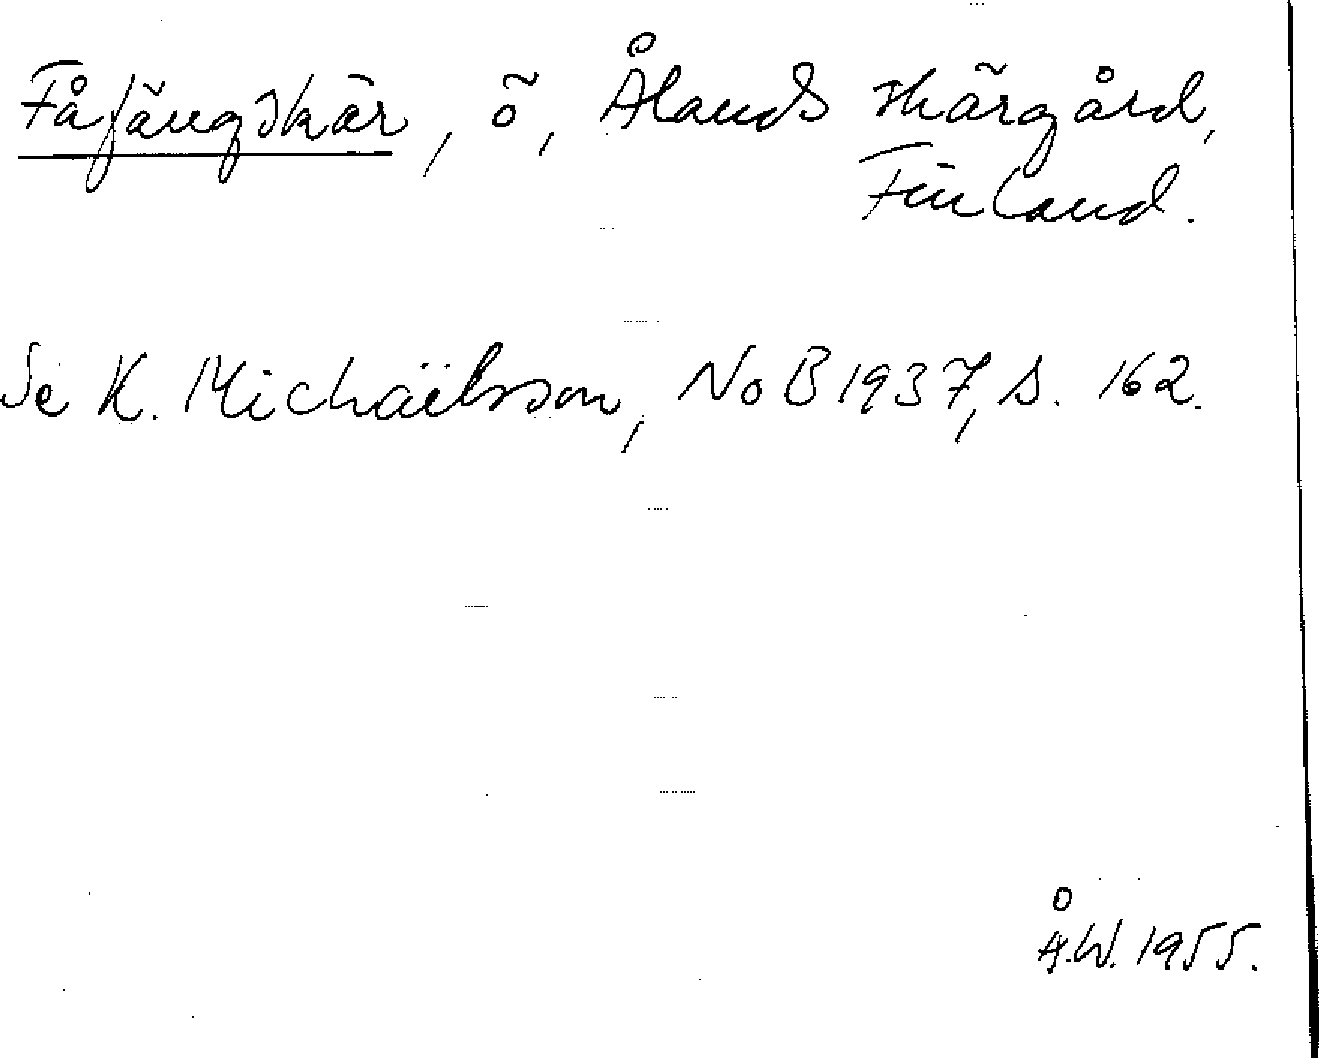 Fåfängskär, ö, Ålands skärgård,
Finland.
Se K. Michaëlsson, NoB 1937, s. 162.
Å.W. 1955.